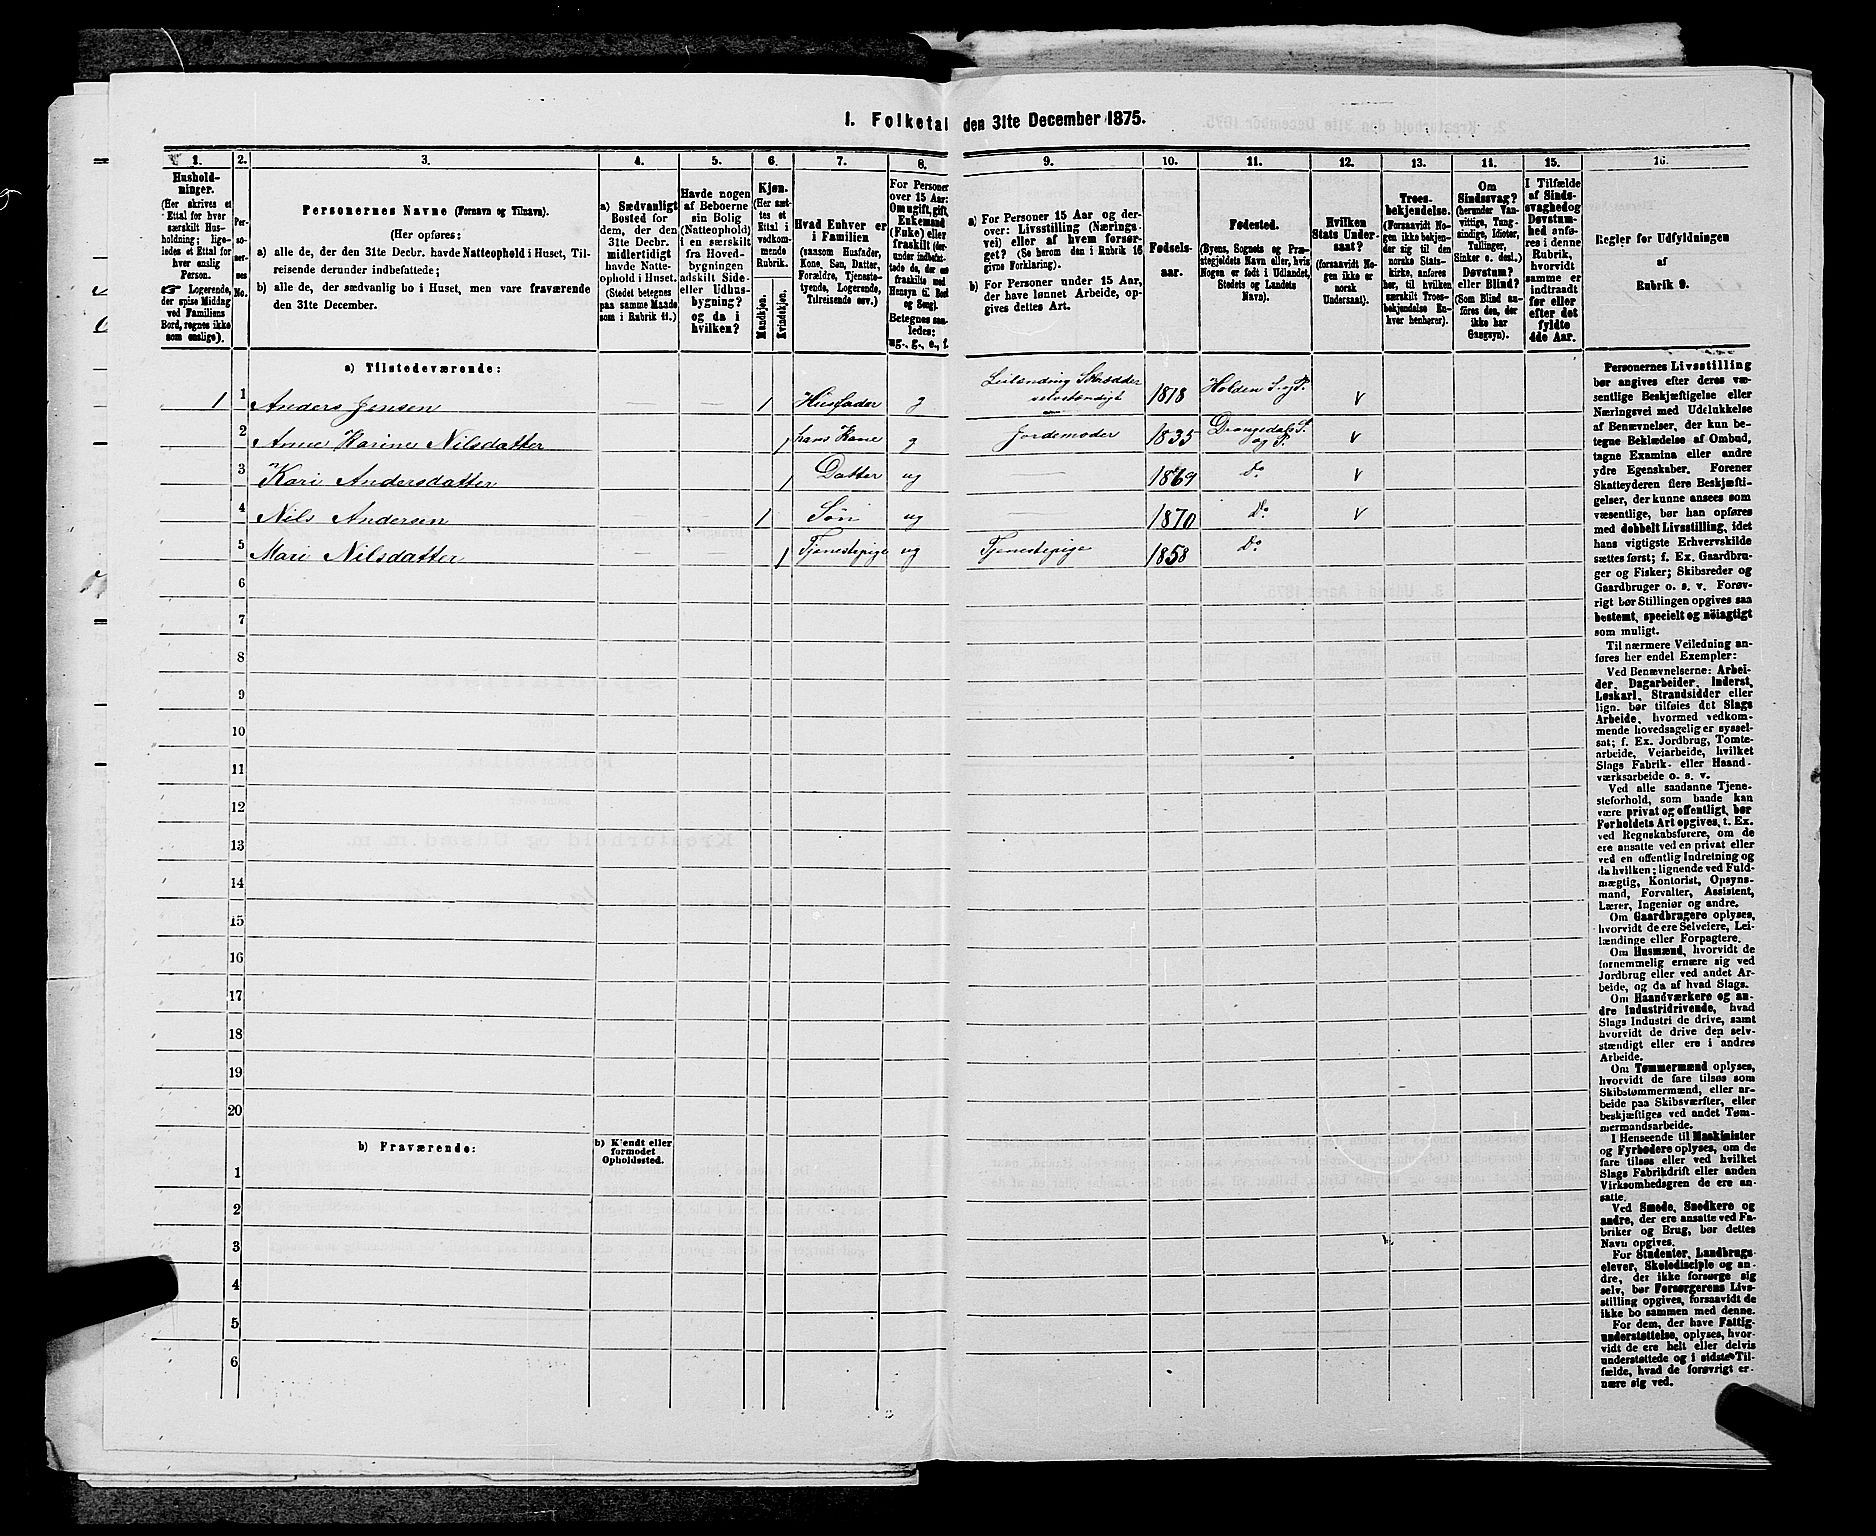 1. Folketal den 31te December 1875.
1. 2. 3. 4. 5. 6. 7. 8. 9. 10. 11. 12. 13. 14. 15. 16.
Hushold-
ninger.
(Her skrives et
Ettal for hver
særskilt Hus-
holdning; lige-
ledes et Ettal for
hver enslig
Person.
☞ Logerende,
der spise Middag
ved Familiens
Bord, regnes ikke
som enslige).
Per-
so-
ner-
nes
No.
Personernes Navne (Fornavn og Tilnavn).
(Her opføres:
a) alle de, der den 31te Decbr. havde Natteophold i Huset, Til-
reisende derunder indbefattede;
b) alle de, der sædvanlig bo i Huset, men vare fraværende
den 31te December.
a) Sædvanligt
Bosted for
dem, der den
31te Decbr.
midlertidigt
havde Natte-
ophold i Huset.
(Stedet betegnes
paa samme Maade
som i Rubrik 11.)
Havde nogen
af Beboerne
sin Bolig
(Natteophold)
i en særskilt
fra Hoved-
bygningen
adskilt Side-
eller Udhus-
bygning?
og da i
hvilken?
Kjøn.
(Her sæt-
tes et
Ettal i
vedkom-
mende
Rubrik.
Mandkjøn.
Kvindekjøn.
Hvad Enhver er
i Familien
(saasom Husfader,
Kone, Søn, Datter,
Forældre, Tjeneste-
tyende, Logerende,
Tilreisende osv.)
For Personer
over 15 Aar:
Om ugift, gift,
Enkemand
(Enke) eller
fraskilt (der-
under indbefat-
tede de, der ere
fraskilte med
Hensyn til Bord
og Seng).
Betegnes saa-
ledes:
ug., g., e., f.
a) For Personer 15 Aar og der-
over: Livsstilling (Nærings-
vei) eller af hvem forsør-
get? (Se herom den i Rubrik 16
givne Forklaring).
b) For Personer under 15 Aar,
der have lønnet Arbeide, op-
gives dettes Art.
Fødsels-
aar.
Fødested.
(Byens, Sognets og Præ-
stegjeldets Navn eller, hvis
Nogen er født i Udlandet,
Stedets og Landets
Navn).
Hvilken
Stats Under-
saat?
(forsaavidt No-
gen ikke er
norsk
Undersaat).
Troes-
bekjendelse.
(Forsaavidt No-
gen ikke bekjen-
der sig til den
norske Stats-
kirke, anføres
her, til hvilken
særskilt Troes-
bekjendelse En-
hver henhører).
Om
Sindssvag?
(herunder Van-
vittige, Tung-
sindige, Idioter,
Tullinger,
Sinker o. desl.)
Døvstum?
eller Blind?
(Som Blind an-
føres den, der
ikke har
Gangsyn).
I Tilfælde
af Sinds-
svaghed og
Døvstum-
hed anfø-
res i denne
Rubrik,
hvorvidt
samme er
indtraadt
før eller
efter det
fyldte
4de Aar.
Regler for Udfyldningen
af
Rubrik 9.
a) Tilstedeværende:
1 1 Anders Jensen — — 1 Husfader g Leilænding Skrædder selvstændigt 1818 Holden S. og P. v
2 Anne Karine Nilsdatter 1 hans Kone g Jordemoder 1835 Drangedals S. og P. v
3 Kari Andersdatter 1 Datter ug — 1869 do v
4 Nils Andersen 1 Søn ug — 1870 Do v
5 Mari Nilsdatter 1 Tjenestepige ug Tjenestepige 1858 Do
6
7
8
9
10
11
12
13
14
15
16
17
18
19
20
b) Fraværende:
b) Kjendt eller
formodet
Opholdssted.
1
2
3
4
5
6
Personernes Livsstilling
bør angives efter deres væ-
sentlige Beskjæftigelse eller
Næringsvei med Udelukkelse
af Benævnelser, der kun be-
tegne Beklædelse af Ombud,
tagne Examina eller andre
ydre Egenskaber. Forener
Skatteyderen flere Beskjæfti-
gelser, der kunne ansees som
væsentlige, bør han opføres
med dobbelt Livsstilling, idet
hans vigtigste Erhvervskilde
sættes først; f. Ex. Gaardbru-
ger og Fisker; Skibsreder og
Gaardbruger o. s. v. Forøv-
rigt bør Stillingen opgives saa
bestemt, specielt og nöiagtigt
som muligt.
Til nærmere Veiledning an-
føres her endel Exempler:
Ved Benævnelserne: Arbei-
der, Dagarbeider, Inderst,
Løskarl, Strandsidder eller
lign. bør tilføies det Slags
Arbeide, hvormed vedkom-
mende hovedsagelig er syssel-
sat; f. Ex. Jordbrug, Tomte-
arbeide, Veiarbeide, hvilket
Slags Fabrik- eller Haand-
værksarbeide o. s. v.
Ved alle saadanne Tjene-
steforhold, som baade kan
være privat og offentligt, bør
Forholdets Art opgives, t. Ex.
ved Regnskabsførere, om de
ere ansatte ved en privat eller
ved en offentlig Indretning og
da hvilken; lignende ved Fuld-
mægtig, Kontorist, Opsyns-
mand, Forvalter, Assistent,
Lærer, Ingeniør og andre.
Om Gaardbrugere oplyses,
hvorvidt de ere Selveiere, Lei-
lændinge eller Forpagtere.
Om Husmænd, hvorvidt de
fornemmelig ernære sig ved
Jordbrug eller ved andet Ar-
beide, og da af hvad Slags.
Om Haandværkere og an-
dre Industridrivende, hvad
Slags Industri de drive, samt
hvorvidt de drive den selv-
stændigt eller ere i andres
Arbeide.
Om Tømmermænd oplyses,
hvorvidt de fare tilsøs som
Skibstømmermænd, eller ar-
beide paa Skibsværfter, eller
beskjæftiges ved andet Tøm-
mermandsarbeide.
I Henseende til Maskinister
og Fyrbødere oplyses, om de
fare tilsøs eller ved hvilket
Slags Fabrikdrift eller anden
Virksomhedsgren de ere an-
satte.
Ved Smede, Snedkere og
andre, der ere ansatte ved Fa-
briker og Brug, bør dettes
Navn opgives.
For Studenter, Landbrugs-
elever, Skoledisciple og an-
dre, der ikke forsørge sig
selv, bør Forsørgerens Livs-
stilling opgives, forsaavidt de
ikke bo sammen med denne.
For dem, der have Fattig-
understøttelse, oplyses, hvor-
vidt de ere helt eller delvis
understøttede og i sidste Til-
fælde, hvad de forøvrigt er-
nære sig ved.